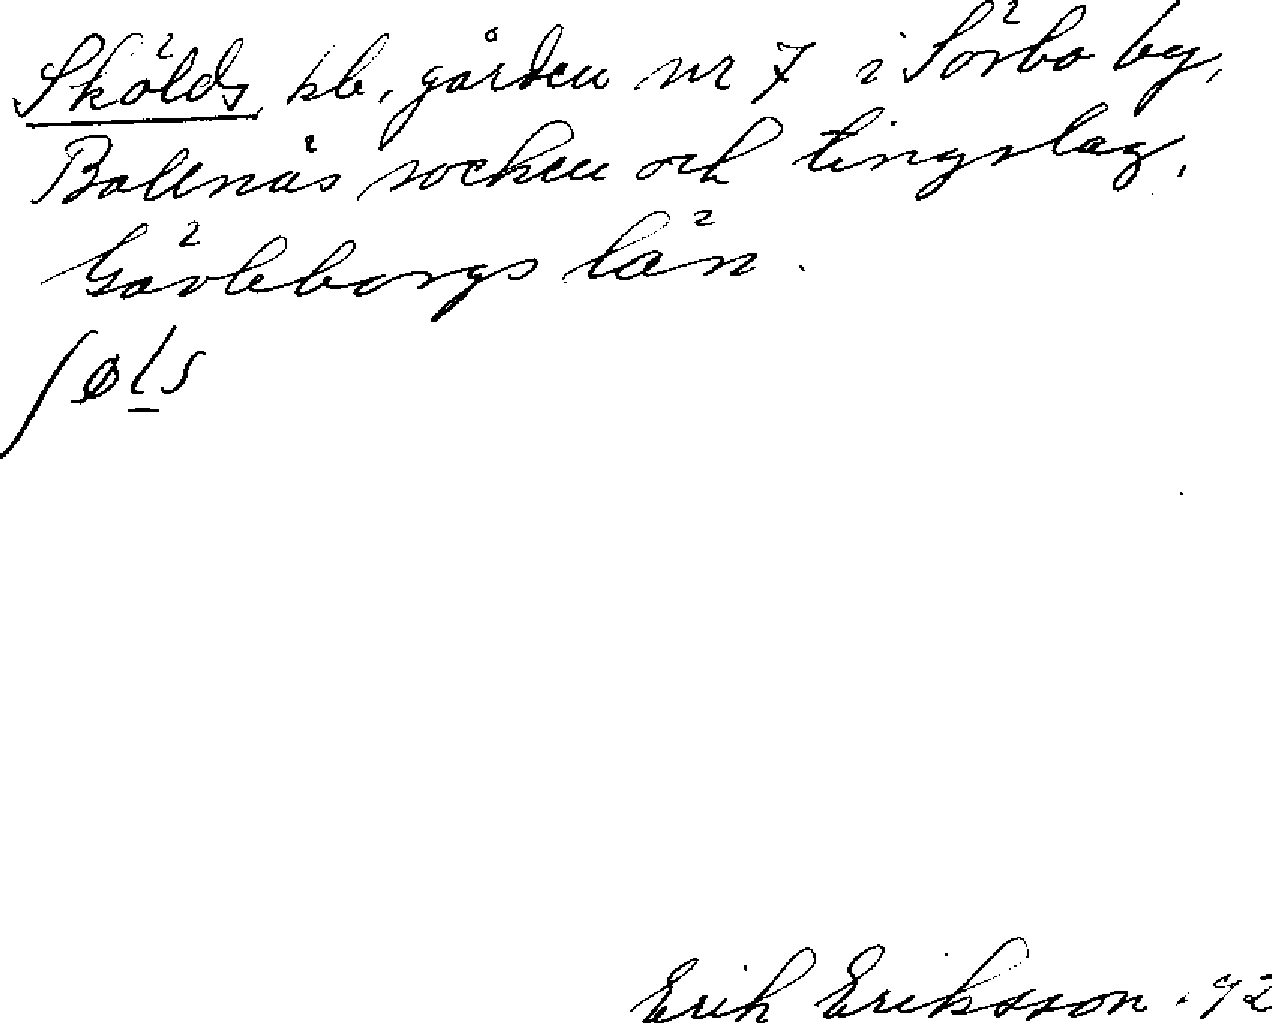 Skölds, kb, gården nr 7 i Sörbo by,
Bollnäs socken och tingslag,
Gävleborgs län.
ʃøl̲s
Erik Eriksson. 42